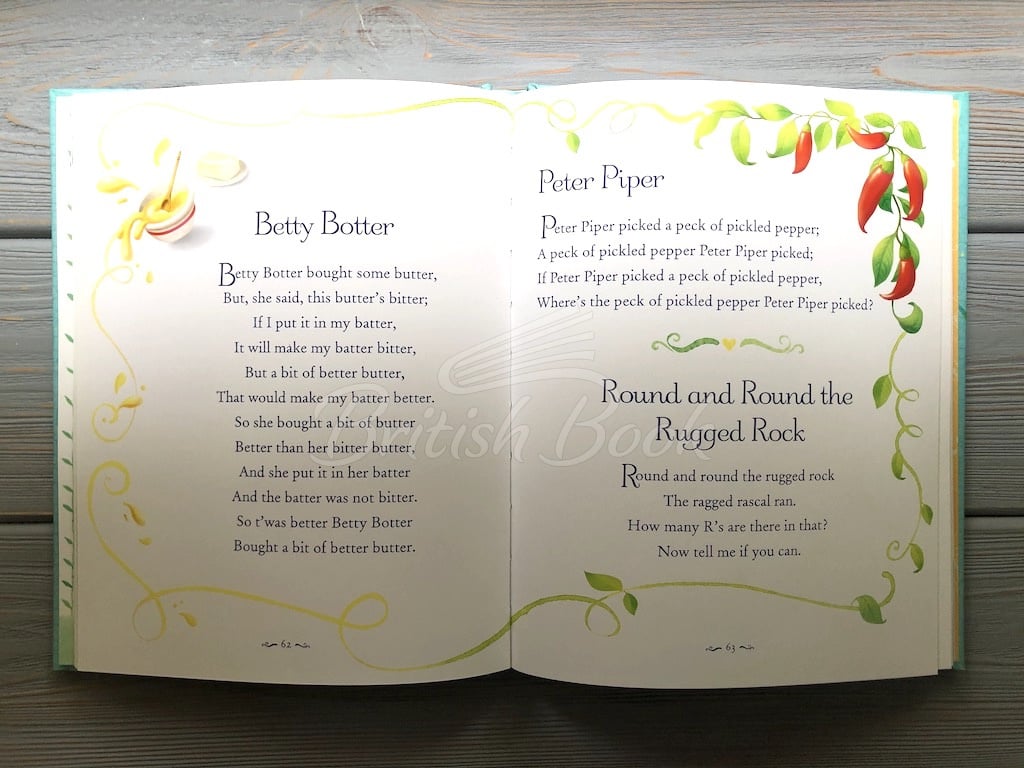 Betty Botter
Betty Botter bought some butter,
But, she said, this butter's bitter;
If I put it in my batter,
It will make my batter bitter,
But a bit of better butter,
That would make my batter better.
So she bought a bit of butter
Better than her bitter butter,
And she put it in her batter
And the batter was not bitter.
So t'was better Betty Botter
Bought a bit of better butter.
62
Peter Piper
Peter Piper picked a peck of pickled pepper;
A peck of pickled pepper Peter Piper picked;
If Peter Piper picked a peck of pickled pepper,
Where's the peck of pickled pepper Peter Piper picked?
Round and Round the
Rugged Rock
Round and round the rugged rock
The ragged rascal ran.
How many R's are there in that?
Now tell me if you can.
63
British Book